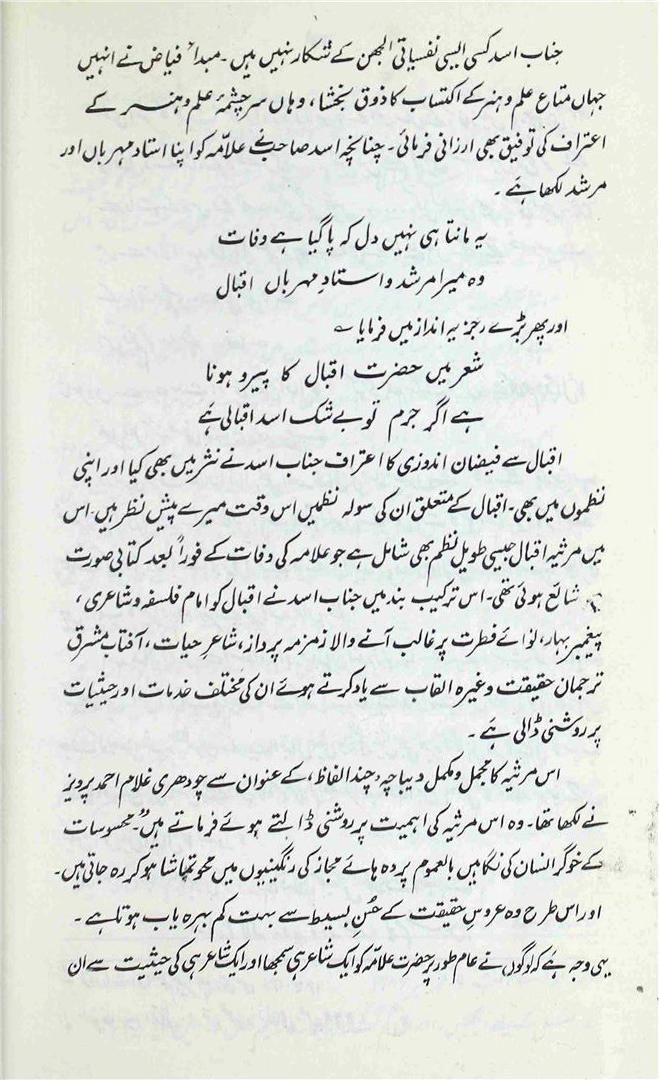 جناب اسد کسی ایسی نفسیاتی الجھن کے شکار نہیں ہیں۔ مبداُ فیاض نے انہیں
جہاں متاع علم و ہنر کے اکتساب کا ذوق بخشا، وہاں سرچشمۂ علم و ہنر کے
اعتراف کی توفیق بھی ارزانی فرمائی۔ چنانچہ اسد صاحب نے علامّہ کو اپنا استاد مہرباں اور
مرشد لکھا ہے۔
یہ مانتا ہی نہیں دل کہ پا گیا ہے وفات
وہ میرا مرشد و استادِ مہرباں اقبال
اور پھر بڑے رجزیہ انداز میں فرمایا ؎
شعر میں حضرت اقبال کا پیرو ہونا
ہے اگر جرم تو بے شک اسد اقبالی ہے
اقبال سے فیضان اندوزی کا اعتراف جناب اسد نے نثر میں بھی کیا اور اپنی
نظموں میں بھی۔ اقبال کے متعلق ان کی سولہ نظمیں اس وقت میرے پیش نظر ہیں۔ اس
میں مرثیہ اقبال جیسی طویل نظم بھی شامل ہے جو علامہ کی وفات کے فوراً بعد کتابی صورت
میں شائع ہوئی تھی۔ اس ترکیب بند میں جناب اسد نے اقبال کو امام فلسفہ و شاعری،
پیغمبر بہار، نوائے فطرت پر غالب آنے والا زمزمہ پرداز، شاعرِ حیات، آفتاب مشرق
ترجمان حقیقت وغیرہ القاب سے یاد کرتے ہوئے ان کی مختلف خدمات اور حیثیات
پر روشنی ڈالی ہے۔
اس مرثیہ کا مجمل و مکمل دیباچہ، چند الفاظ، کے عنوان سے چودھری غلام احمد پرویز
نے لکھا تھا۔ وہ اس مرثیہ کی اہمیت پر روشنی ڈالتے ہوئے فرماتے ہیں:" محسوسات
کے خوگر انسان کی نگاہیں بالعموم پردہ ہائے مجاز کی رنگینیوں میں محو تماشا ہو کر رہ جاتی ہیں۔
اور اس طرح وہ عروسِ حقیقت کے حُسنِ بسیط سے بہت کم بہرہ یاب ہوتا ہے۔
یہی وجہ ہے کہ لوگوں نے عام طور پر حضرت علامّہ کو ایک شاعر ہی سمجھا اور ایک شاعر ہی کی حیثیت سے ان